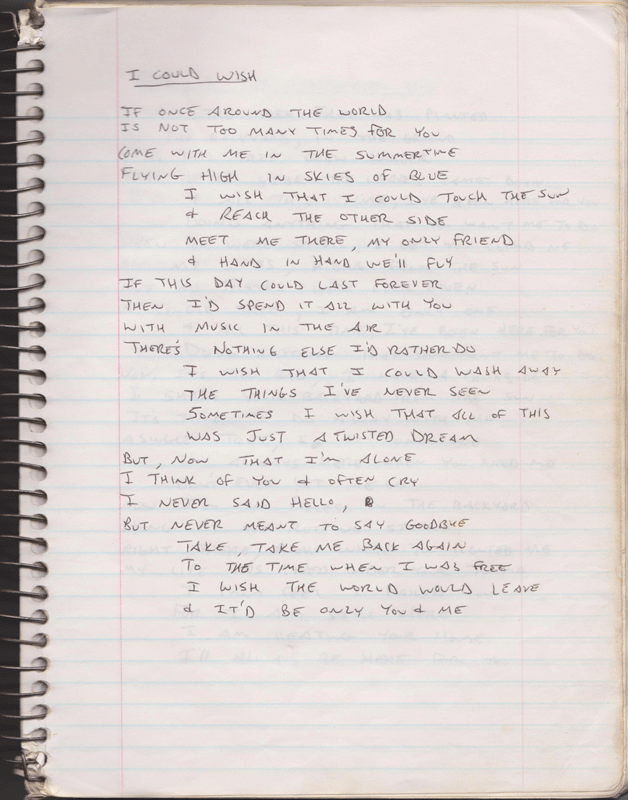 I COULD WISH
IF ONCE AROUND THE WORLD
IS NOT TOO MANY TIMES FOR YOU
COME WITH ME IN THE SUMMERTIME
FLYING HIGH IN SKIES OF BLUE
I WISH THAT I COULD TOUCH THE SUN
& REACH THE OTHER SIDE
MEET ME THERE, MY ONLY FRIEND
& HAND IN HAND WE'LL FLY
IF THIS DAY COULD LAST FOREVER
THEN I'D SPEND IT ALL WITH YOU
WITH MUSIC IN THE AIR
THERE'S NOTHING ELSE I'D RATHER DO
I WISH THAT I COULD WASH AWAY
THE THINGS I'VE NEVER SEEN
SOMETIMES I WISH THAT ALL OF THIS
WAS JUST A TWISTED DREAM
BUT, NOW THAT I'M ALONE
I THINK OF YOU & OFTEN CRY
I NEVER SAID HELLO,
BUT NEVER MEANT TO SAY GOODBYE
TAKE TAKE ME BACK AGAIN
TO THE TIME WHEN I WAS FREE
I WISH THE WORLD WOULD LEAVE
& IT'D BE ONLY YOU & ME